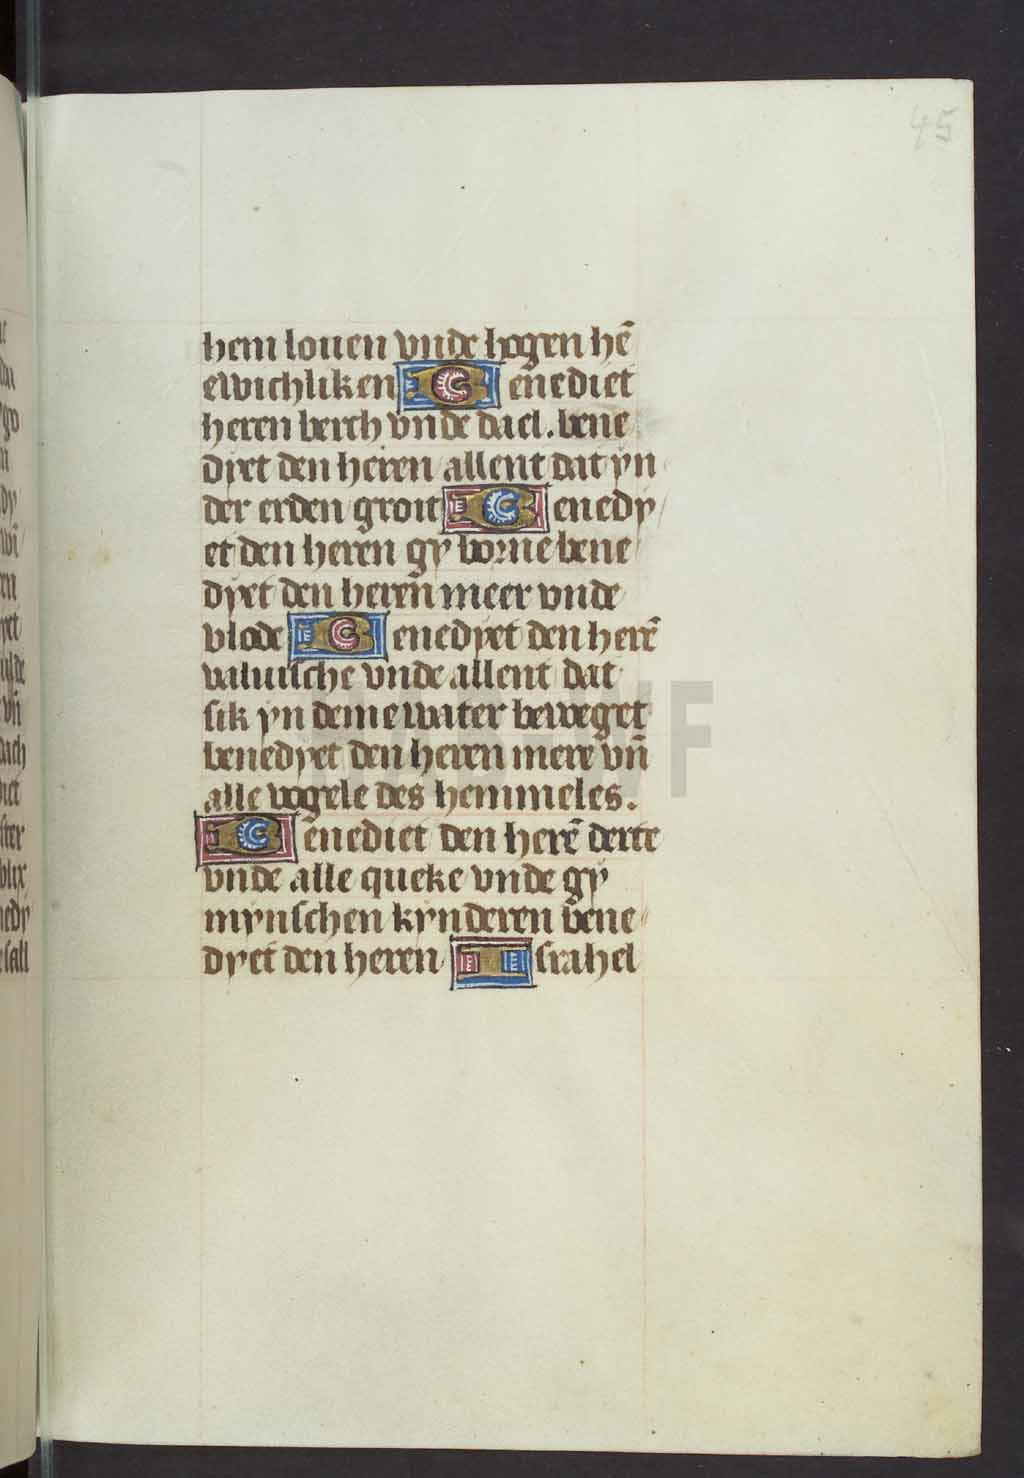 45
hem louen vnde hogen hē
ewichliken Benediet
heren berch vnde dael. bene
dyet den heren allent dat yn
der erden groit Benedy
et den heren gy borne bene
dyet den herēn meer vnde
vlode Benedyet den herē
valuische vnde allent dat
sik yn deme water beweget
benedyet den heren mere vn̄
alle vogele des hemmeles.
Benediet den herē derte
vnde alle queke vnde gy
mynschen kynderen bene
dyet den heren Israhel